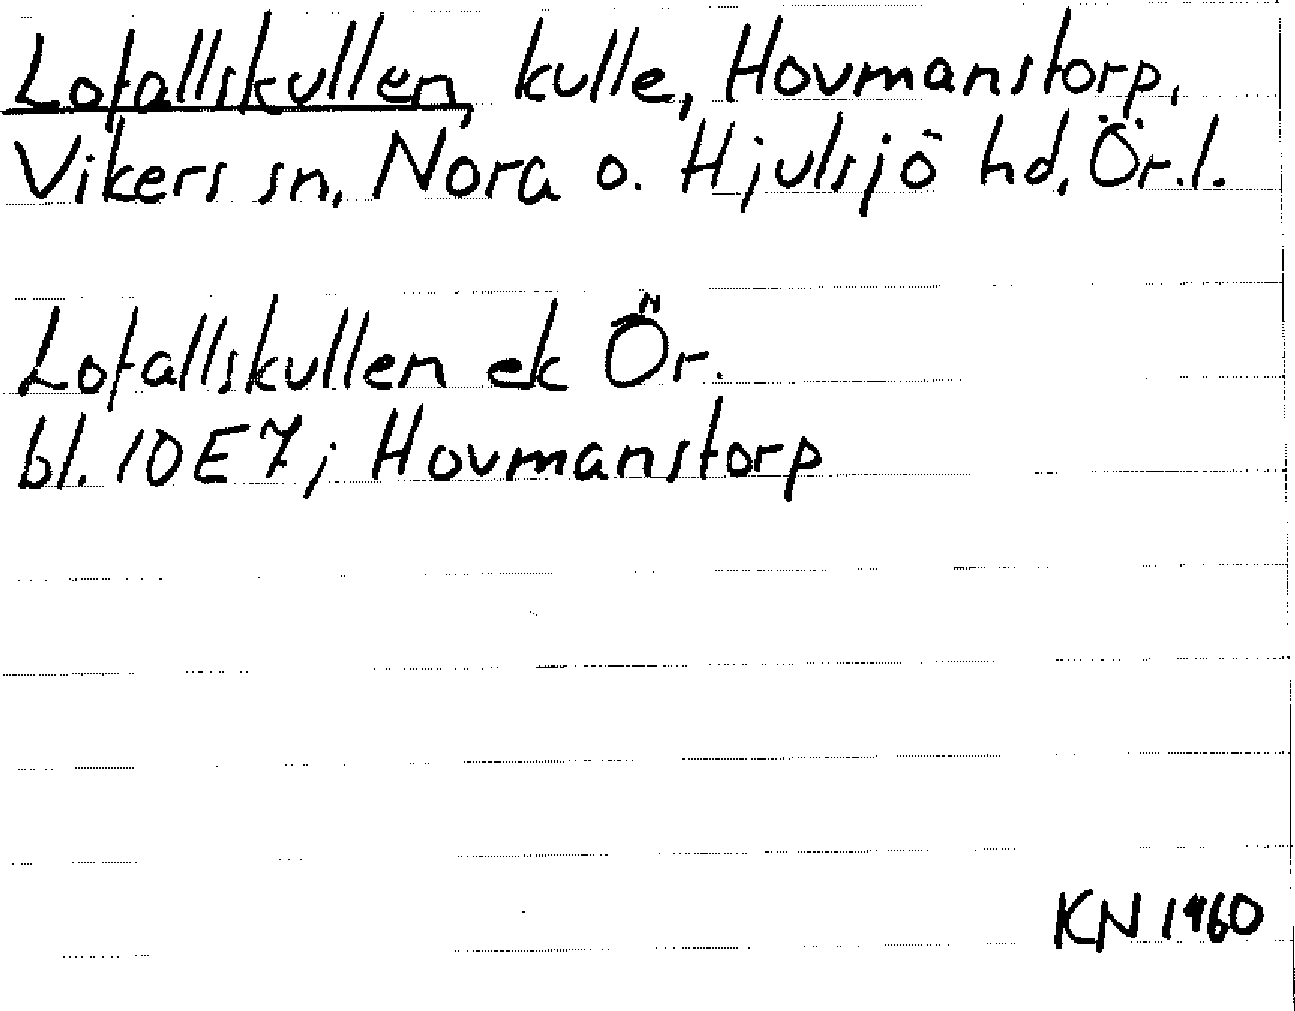 Lofallskullen, kulle, Hovmanstorp,
Vikers sn, Nora o. Hjulsjö hd, Ör.l.
Lofallskullen ek Ör.
bl. 10E7; Hovmanstorp
KN 1960